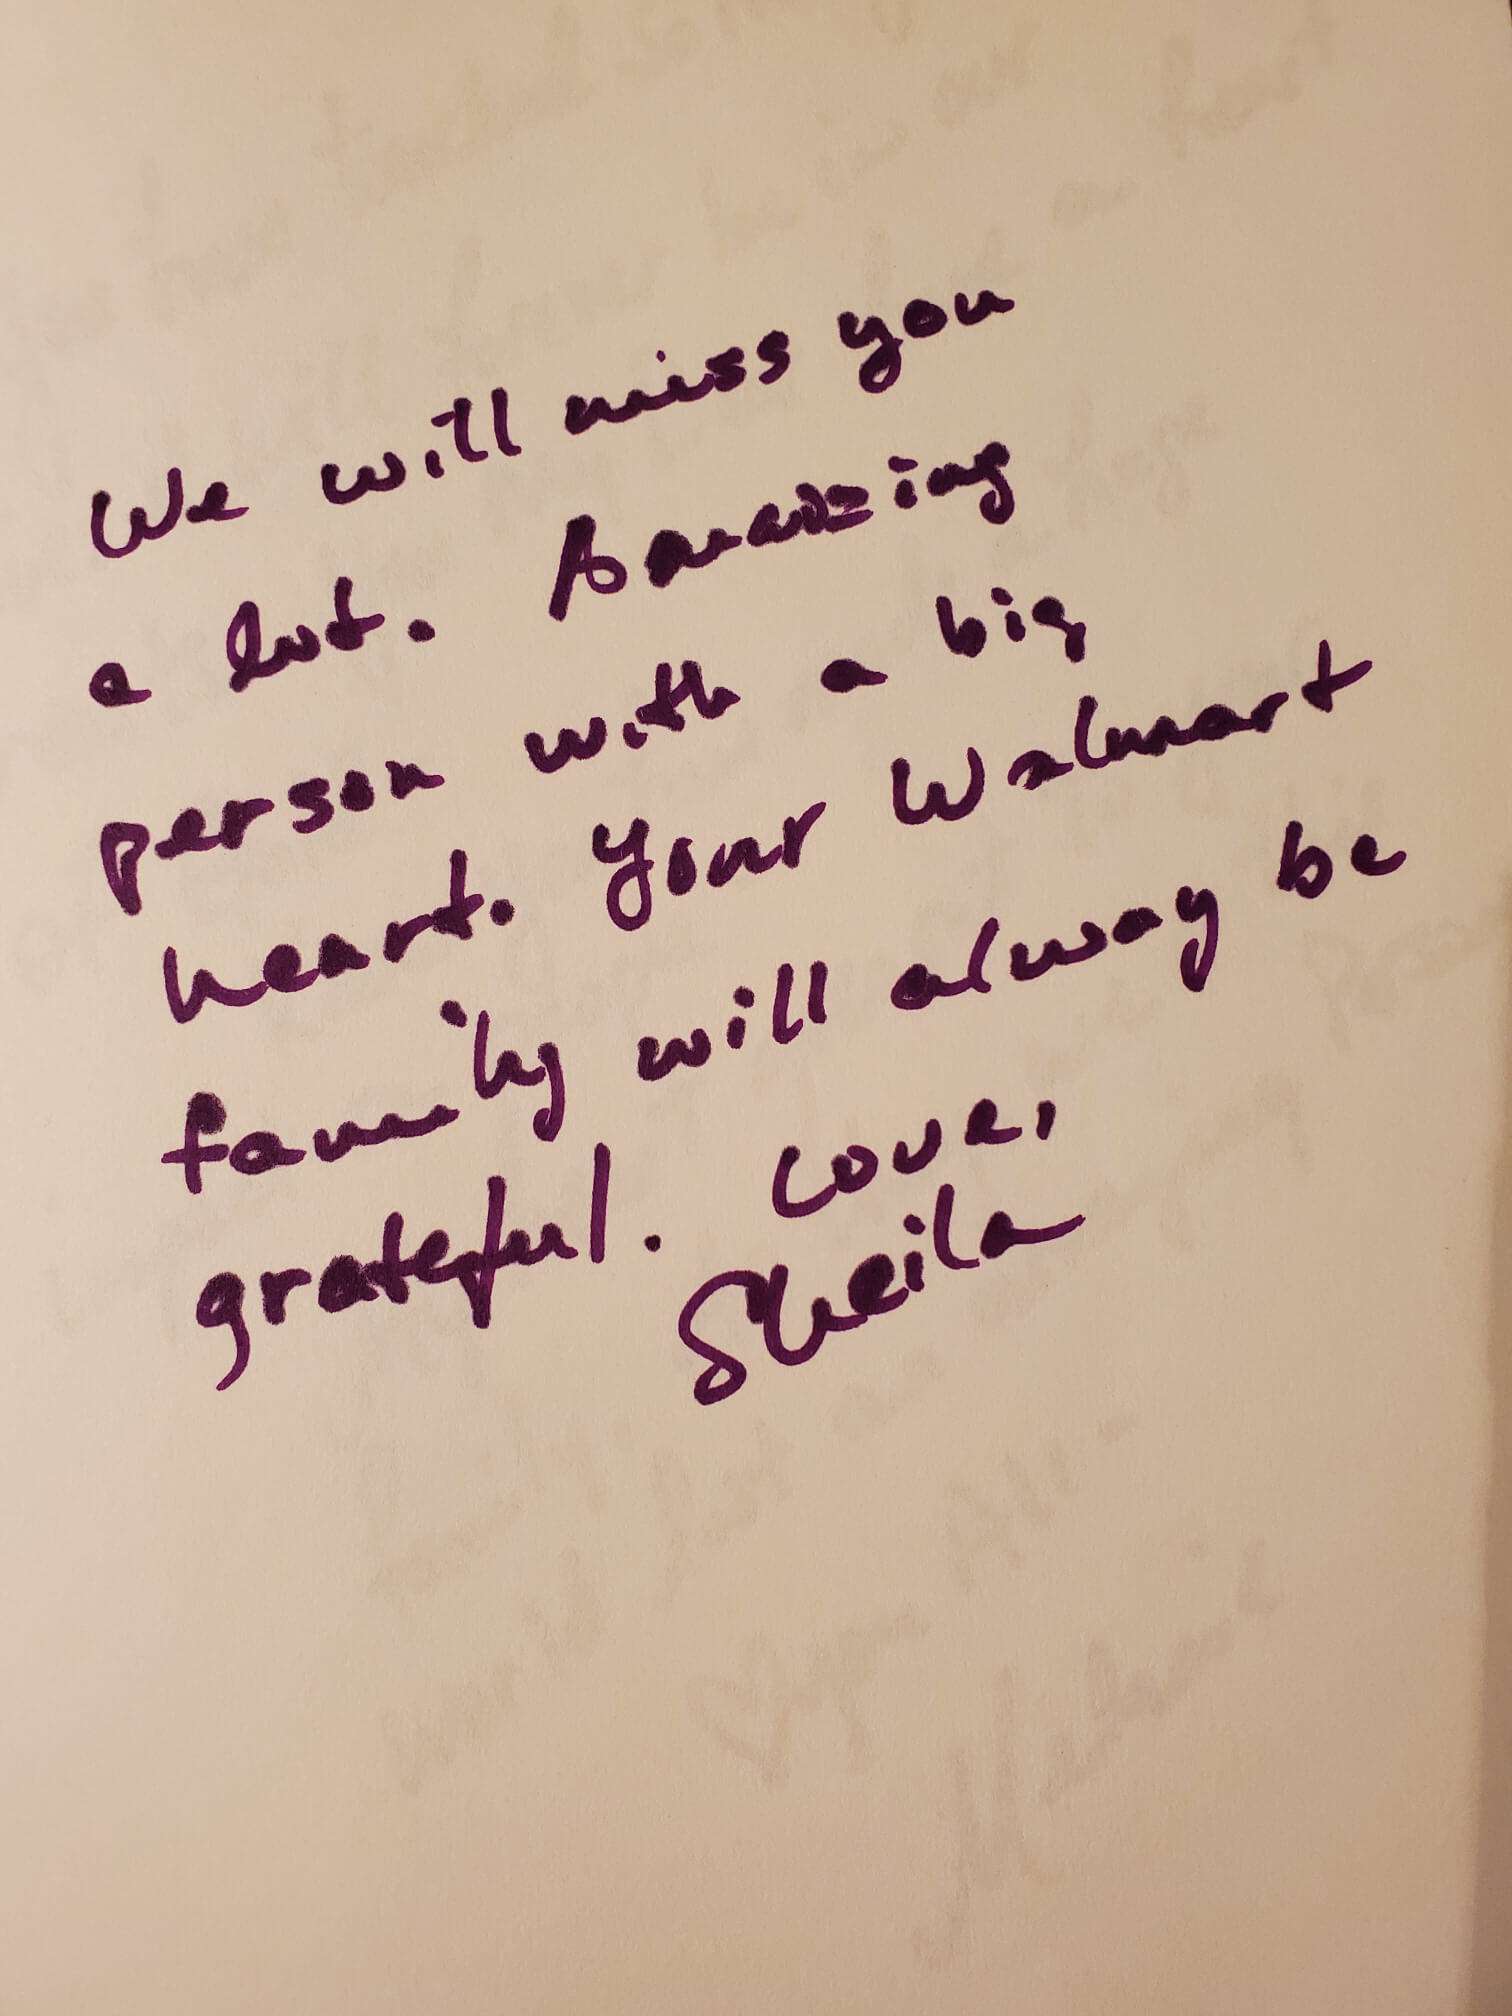 We will miss you
a lot. Amazing
person with a big
heart. Your Walmart
family will alway be
grateful. Love,
Sheila